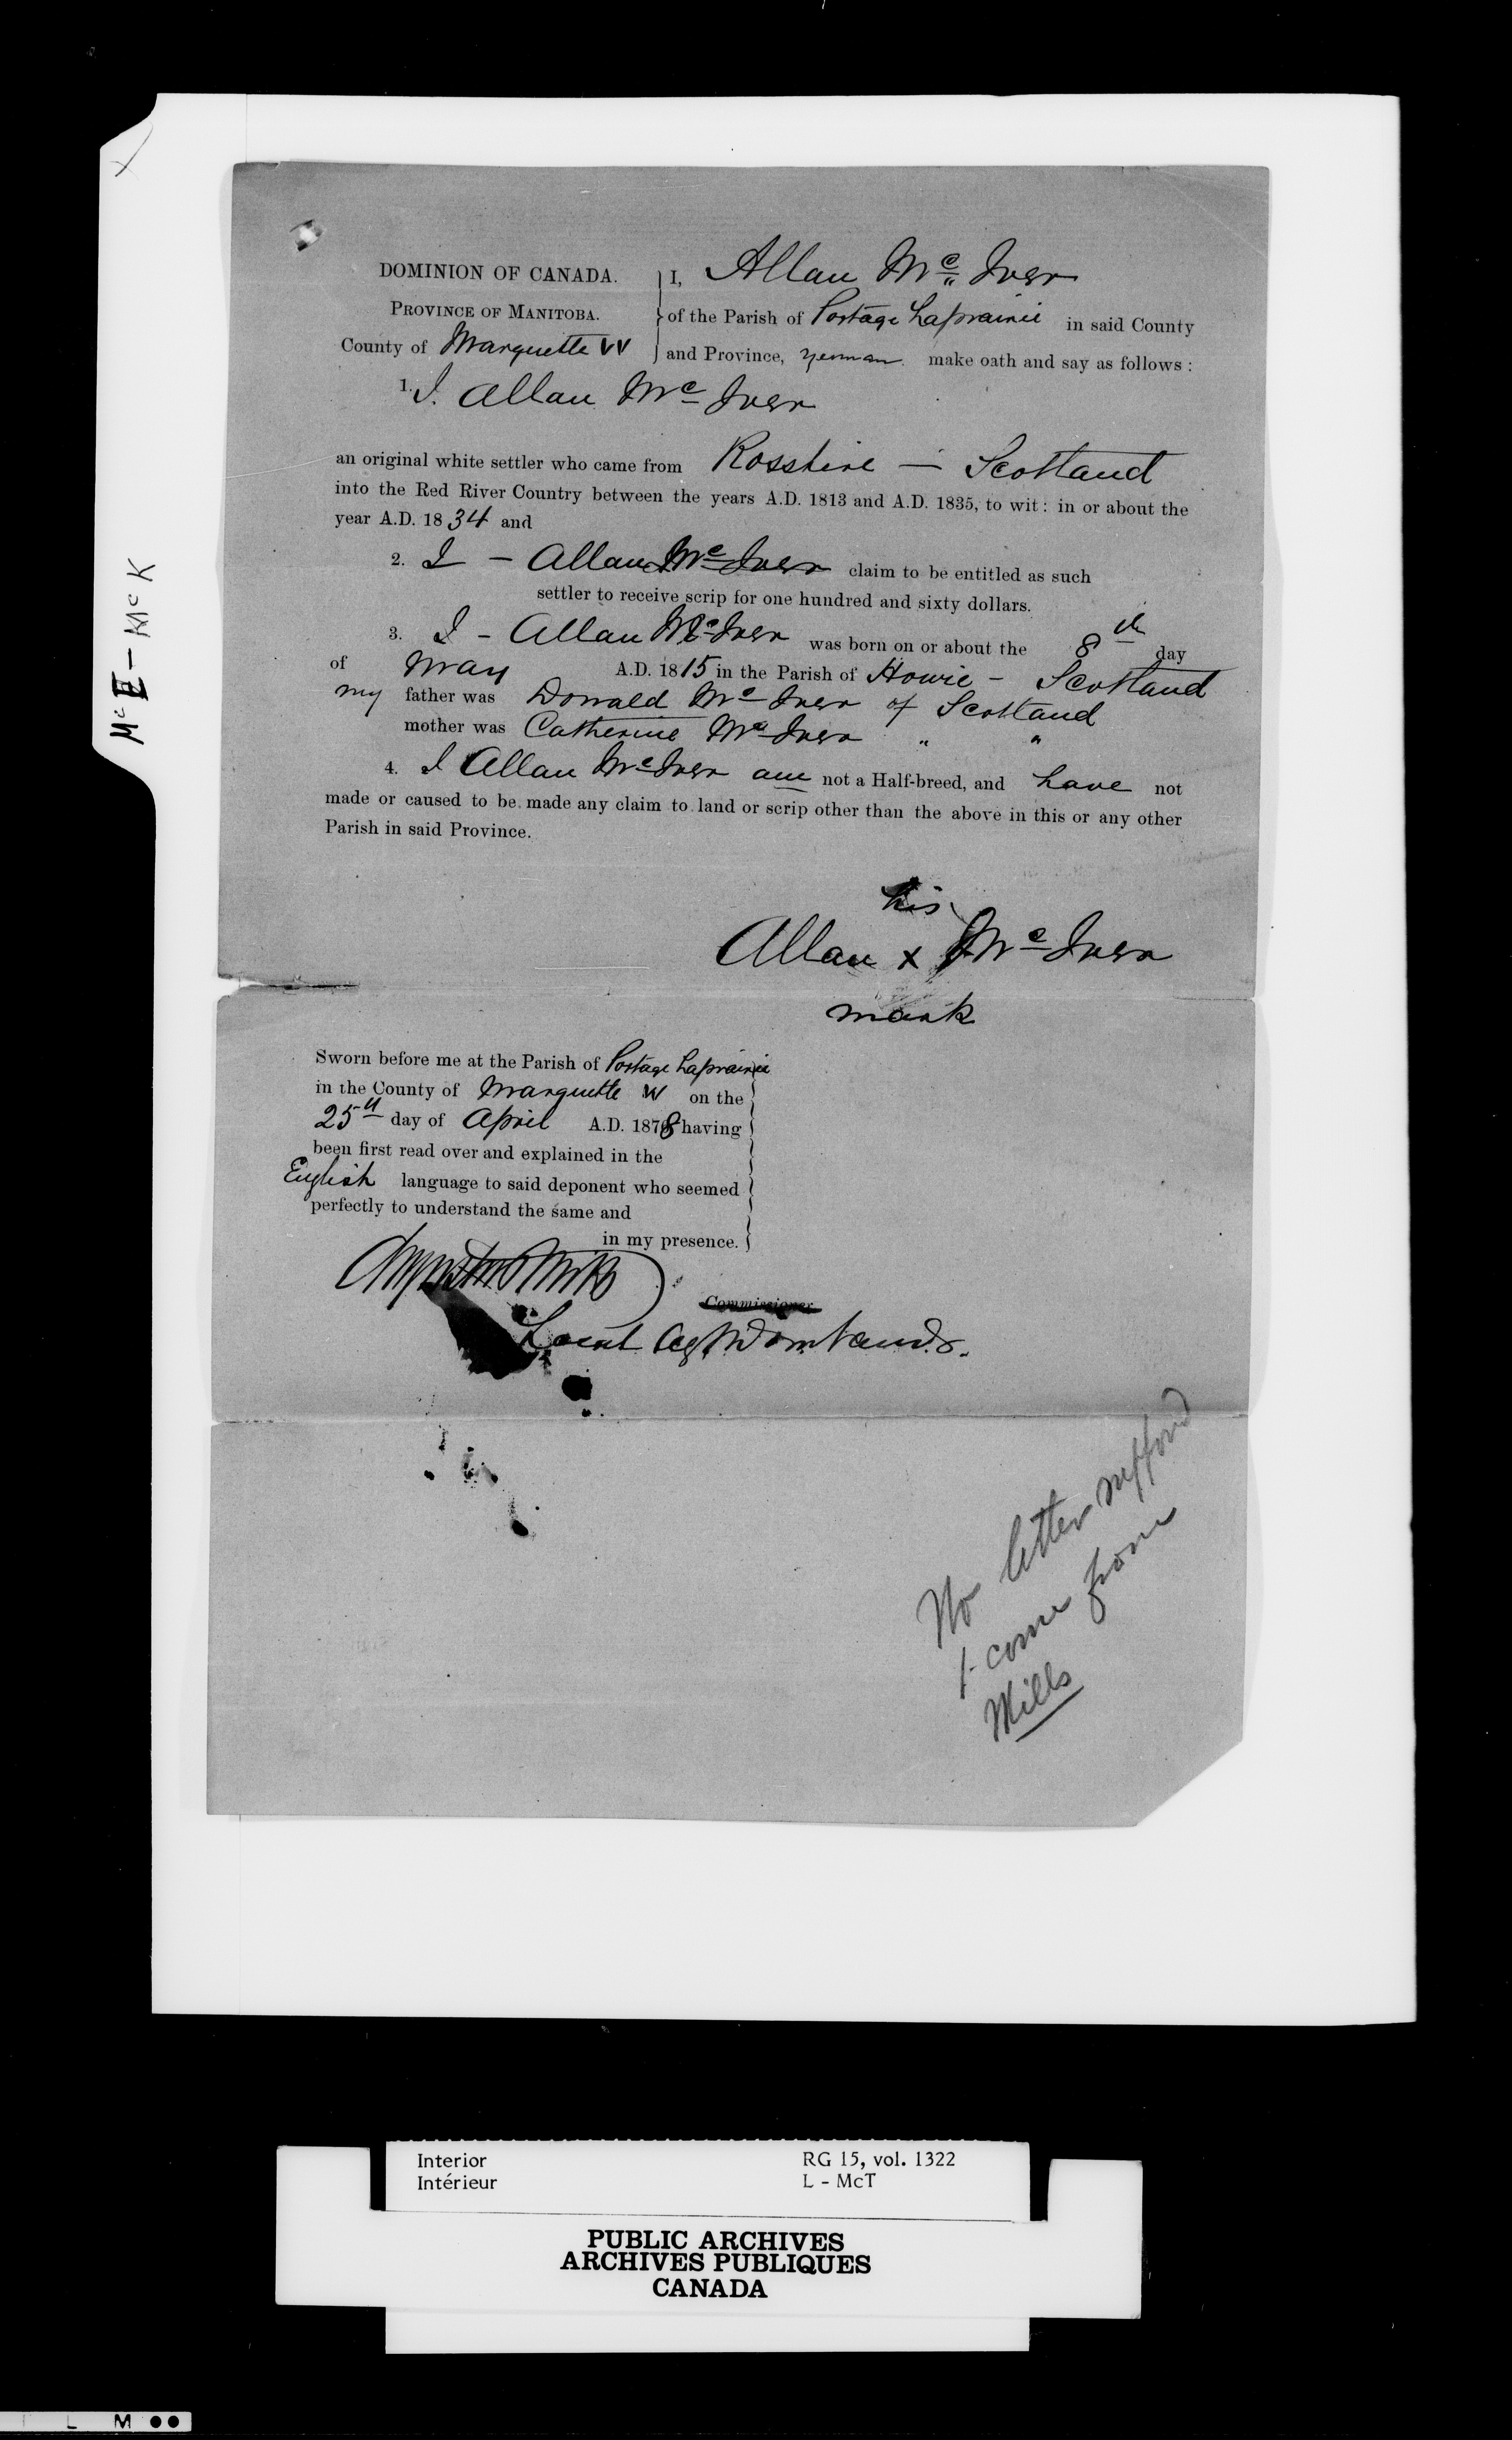 McI - McK
DOMINION OF CANADA.
PROVINCE OF MANITOBA.
County of Marquette W
I, Allan Mc Iver
of the Parish of Portage Laprairie in said County
and Province, yeoman make oath and say as follows:
1. I. Allan Mc Iver
an original white settler who came from Rosshire - Scotland
into the Red River Country between the years A.D. 1813 and A.D. 1835, to wit: in or about the
year A.D. 1834 and
2. I - Allan Mc Iver claim to be entitled as such
settler to receive scrip for one hundred and sixty dollars.
3. I - Allan Mc Iver was born on or about the 8th day
of May A.D. 1815 in the Parish of Howie - Scotland
my father was Donald Mc Iver of Scotland
mother was Catherine Mc Iver " "
4. I Allan Mc Iver am not a Half-breed, and have not
made or caused to be made any claim to land or scrip other than the above in this or any other
Parish in said Province.
his
Allan x Mc Iver
mark
Sworn before me at the Parish of Portage Laprairie
in the County of Marquette W on the
25th day of April A.D. 1878 having
been first read over and explained in the
English language to said deponent who seemed
perfectly to understand the same and
in my presence.
Mills
Commissioner
Local Agt Dom Lands.
No letter
come from
Mills
Interior RG 15, vol. 1322
Intérieur L - McT
PUBLIC ARCHIVES
ARCHIVES PUBLIQUES
CANADA
L M